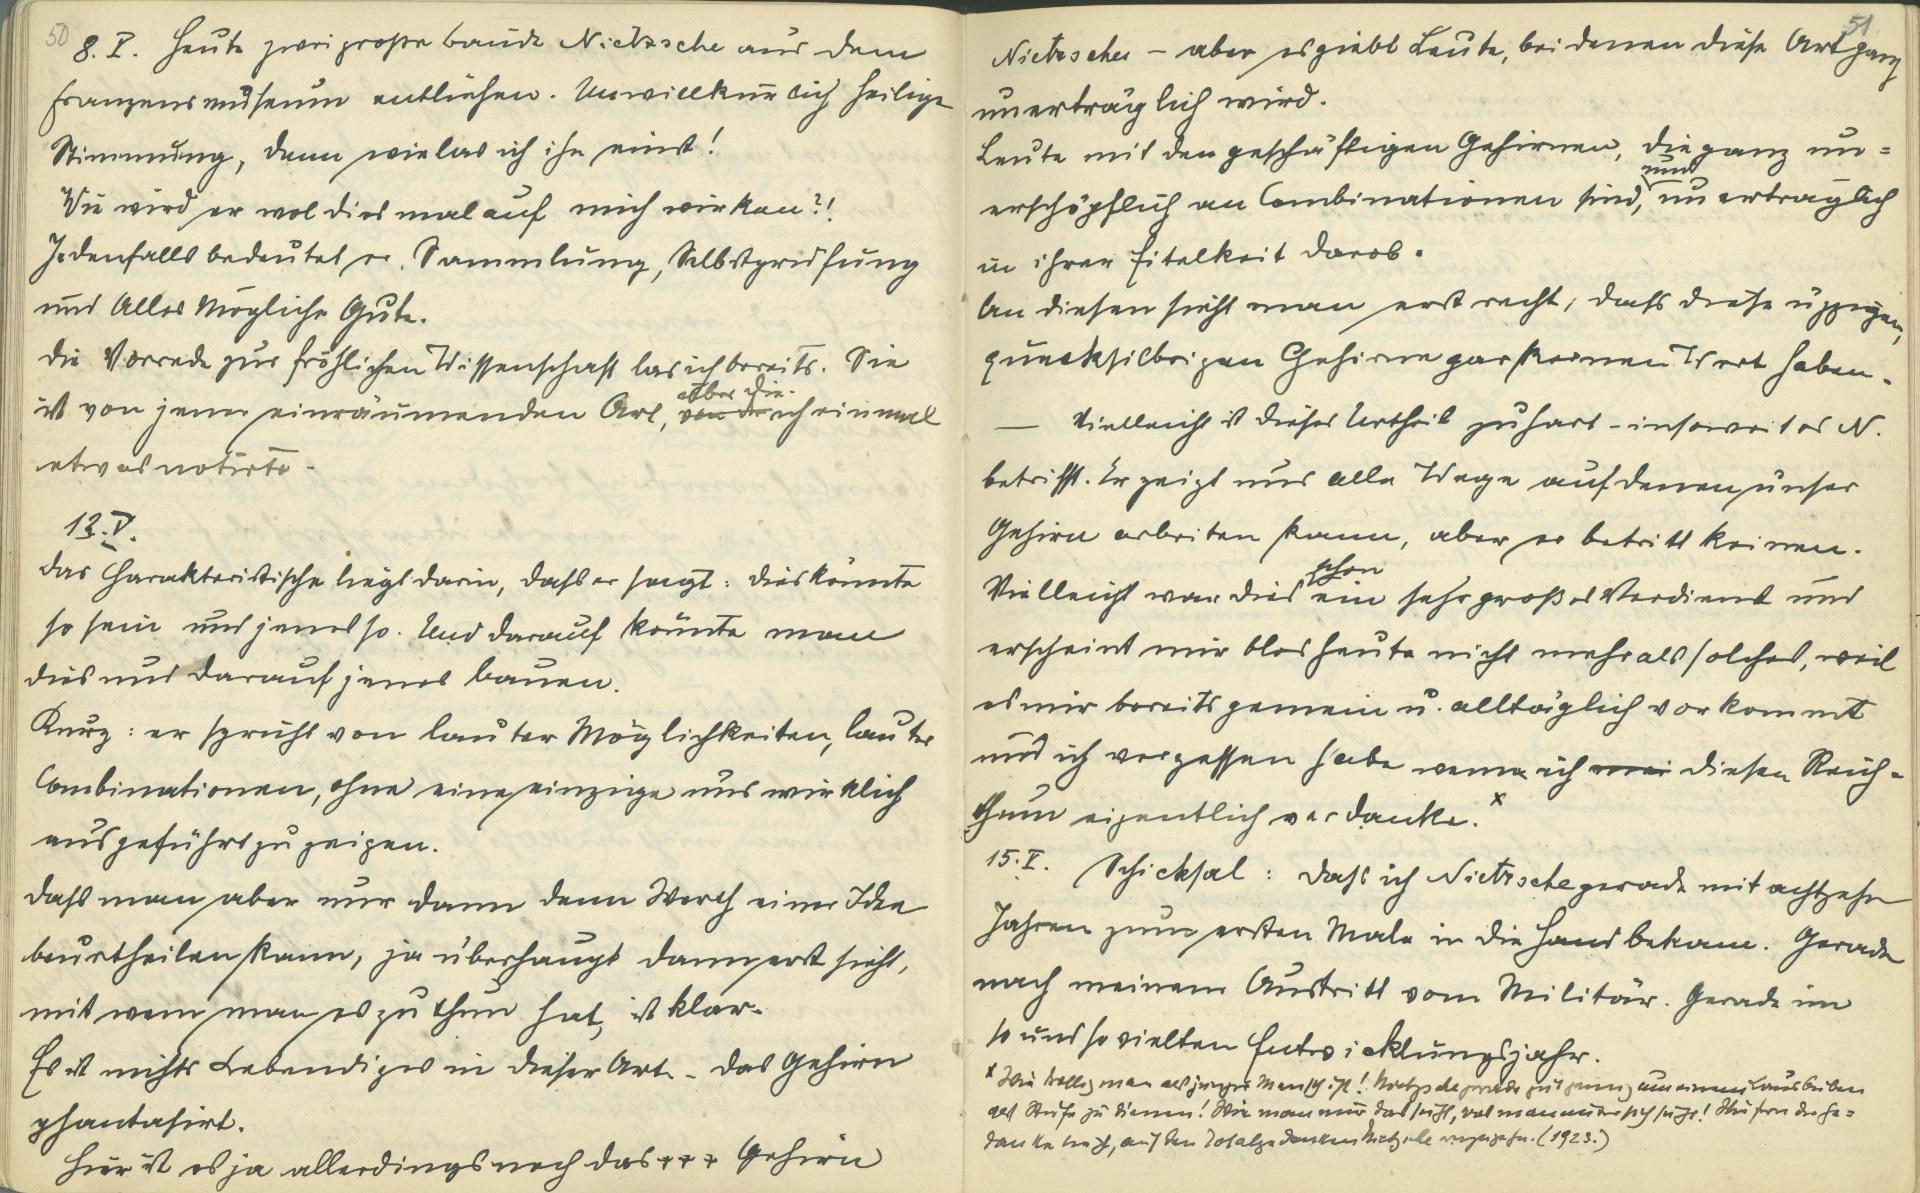 50
8. V. Heute zwei große Bände Nietzsche aus dem
Franzensmuseum entliehen. Unwillkürlich heilige
Stimmung, denn wie las ich ihn einst!
Wie wird er wol diesmal auf mich wirken?!
Jedenfalls bedeutet er Sammlung, Selbstprüfung
und Alles mögliche Gute.
Die Vorrede zur fröhlichen Wissenschaft las ich bereits. Sie
aber die
ist von jener einräumenden Art, von der ich einmal
etwas notirte.
13. V.
Das Charakteristische liegt darin, daß er sagt: dies könnte
so sein und jenes so. Und darauf könnte man
dies und darauf jenes bauen.
Kurz: er spricht von lauter Möglichkeiten, lauter
Combinationen, ohne eine einzige uns wirklich
ausgeführt zu zeigen.
Daß man aber nur dann denn Werth einer Idee
beurtheilen kann, ja überhaupt dann erst sieht,
mit wem man es zu thun hat, ist klar.
Es ist nichts Lebendiges in dieser Art – das Gehirn
phantasirt.
Hier ist es ja allerdings noch das + + + Gehirn
51
Nietzsches – aber es giebt Leute, bei denen diese Art ganz
unerträglich wird.
Leute mit den geschäftigen Gehirnen, die ganz un=
und
erschöpflich an Combinationen sind, unerträglich
in ihrer Eitelkeit darob.
An diesen sieht man erst recht, daß diese üppigen,
quecksilbrigen Gehirne gar keinen Wert haben.
— Vielleicht ist dieses Urtheil zu hart – insoweit es N.
betrifft. Er zeigt uns alle Wege auf denen unser
Gehirn arbeiten kann, aber er betritt keinen.
schon
Vielleicht war dies ein sehr großes Verdienst und
erscheint mir blos heute nicht mehr als solches, weil
es mir bereits gemein u. alltäglich vorkommt
und ich vergessen habe wem ich diesen Reich=
thum eigentlich verdanke. x
15. V. Schicksal: Daß ich Nietzsche gerade mit achtzehn
Jahren zum ersten Male in die Hand bekam. Gerade
nach meinem Austritt vom Militär. Gerade im
so und so vielten Entwicklungsjahr.
x Wie man als junger Mensch ist! Nietzsche gerade gut genug um einem Lausbuben
als Stufe zu dienen! Wie man nur das sieht, was man unter sich sieht! Wie fern der Ge=
danke liegt, auf den Totalgedanken Nietzsche einzugehn. (1923.)